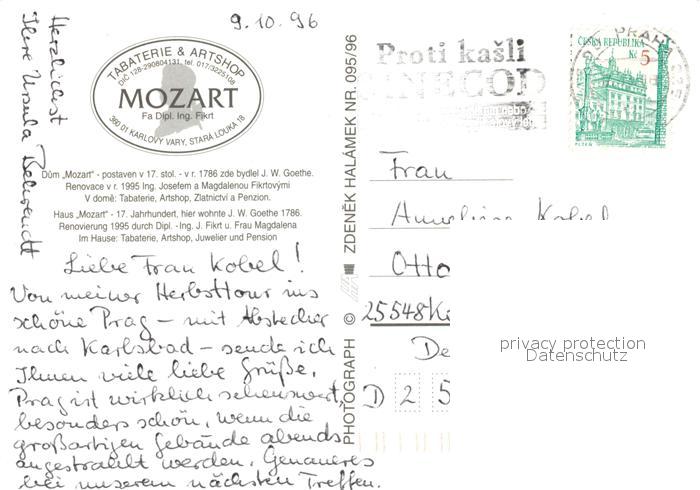 9.10.96
Herzlichst
Ihre Ursula Behrendt
TABATERIE & ARTSHOP
DIČ 128-290804131, tel. 017/3225108
MOZART
Fa Dipl. Ing. Fikrt
360 01 KARLOVY VARY, STARÁ LOUKA 18
Dům „Mozart" - postaven v 17. stol. - v r. 1786 zde bydlel J. W. Goethe.
Renovace v r. 1995 Ing. Josefem a Magdalenou Fikrtovými
V domě: Tabaterie, Artshop, Zlatnictví a Penzion.
Haus „Mozart" - 17. Jahrhundert, hier wohnte J. W. Goethe 1786.
Renovierung 1995 durch Dipl. -Ing. J. Fikrt u. Frau Magdalena
Im Hause: Tabaterie, Artshop, Juwelier und Pension
Liebe Frau Kobel!
Von meiner Herbsttour ins
schöne Prag – mit Abstecher
nach Karlsbad – sende ich
Ihnen viele liebe Grüße.
Prag ist wirklich sehenswert,
besonders schön, wenn die
großartigen Gebäude abends
angestrahlt werden. Genaueres
bei unserem nächsten Treffen.
PHOTOGRAPH © ZDENĚK HALÁMEK NR. 095/96
Proti kašli
ČESKÁ REPUBLIKA
Kč 5
PLZEŇ
Frau
Kobel
Otto
25548 K
De
D 2 5
privacy protection
Datenschutz